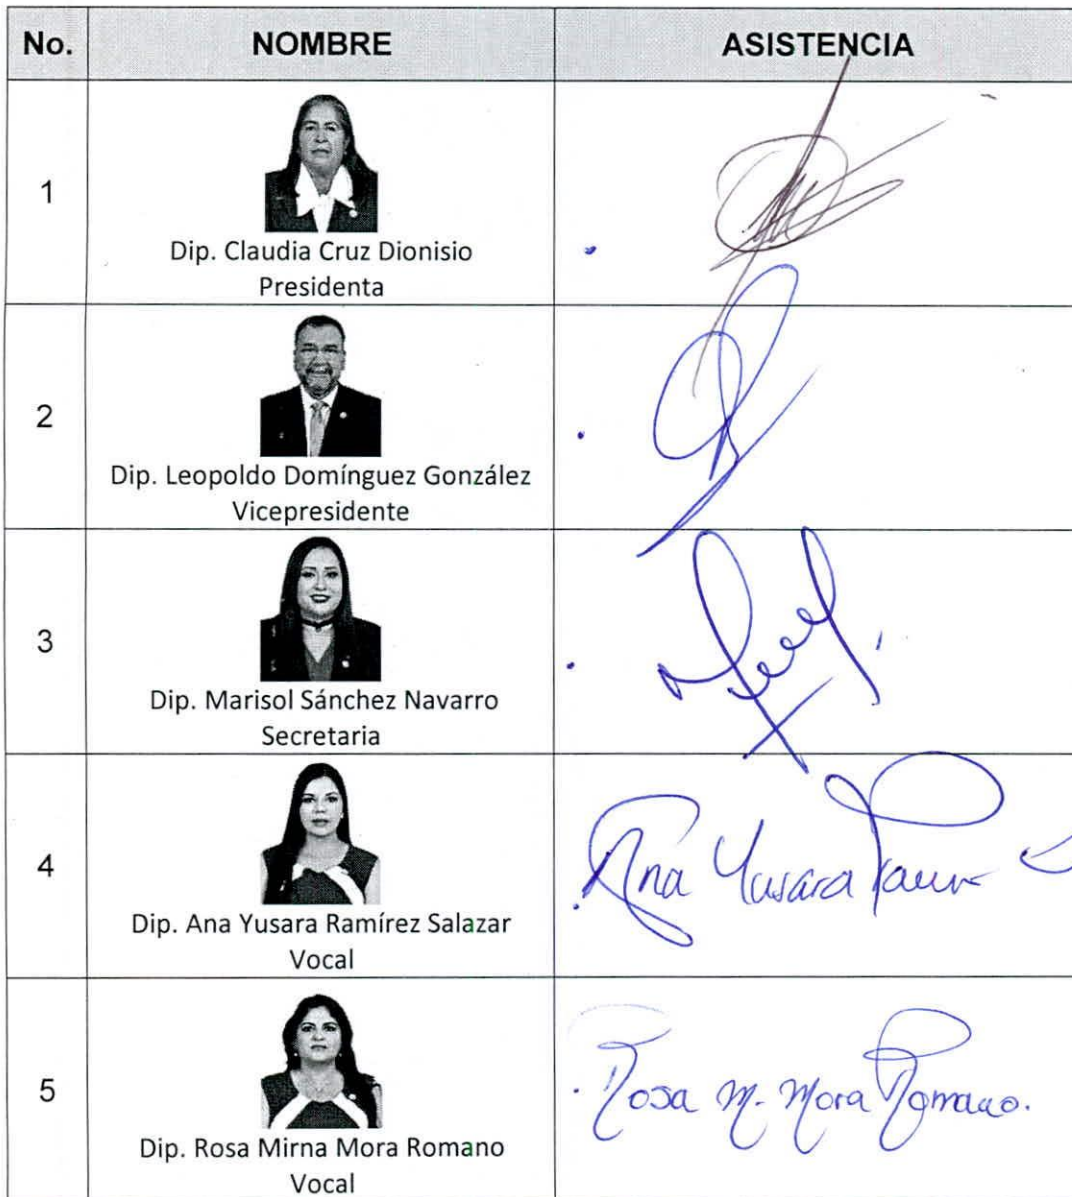 No. NOMBRE ASISTENCIA
1
Dip. Claudia Cruz Dionisio
Presidenta
2
Dip. Leopoldo Domínguez González
Vicepresidente
3
Dip. Marisol Sánchez Navarro
Secretaria
4
Dip. Ana Yusara Ramírez Salazar
Vocal
Ana Yusara
5
Dip. Rosa Mirna Mora Romano
Vocal
Rosa M. Mora Romano.